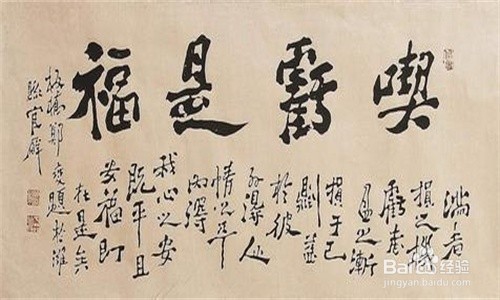 喫虧是福
滿者
損之機
虧者
盈之漸
損于己
則益
於彼
外得人
情之平
内得
我心之安
既平且
安福即
在是矣
板橋鄭燮題於濰
縣官廨
Baidu 经验
jingyan.baidu.com